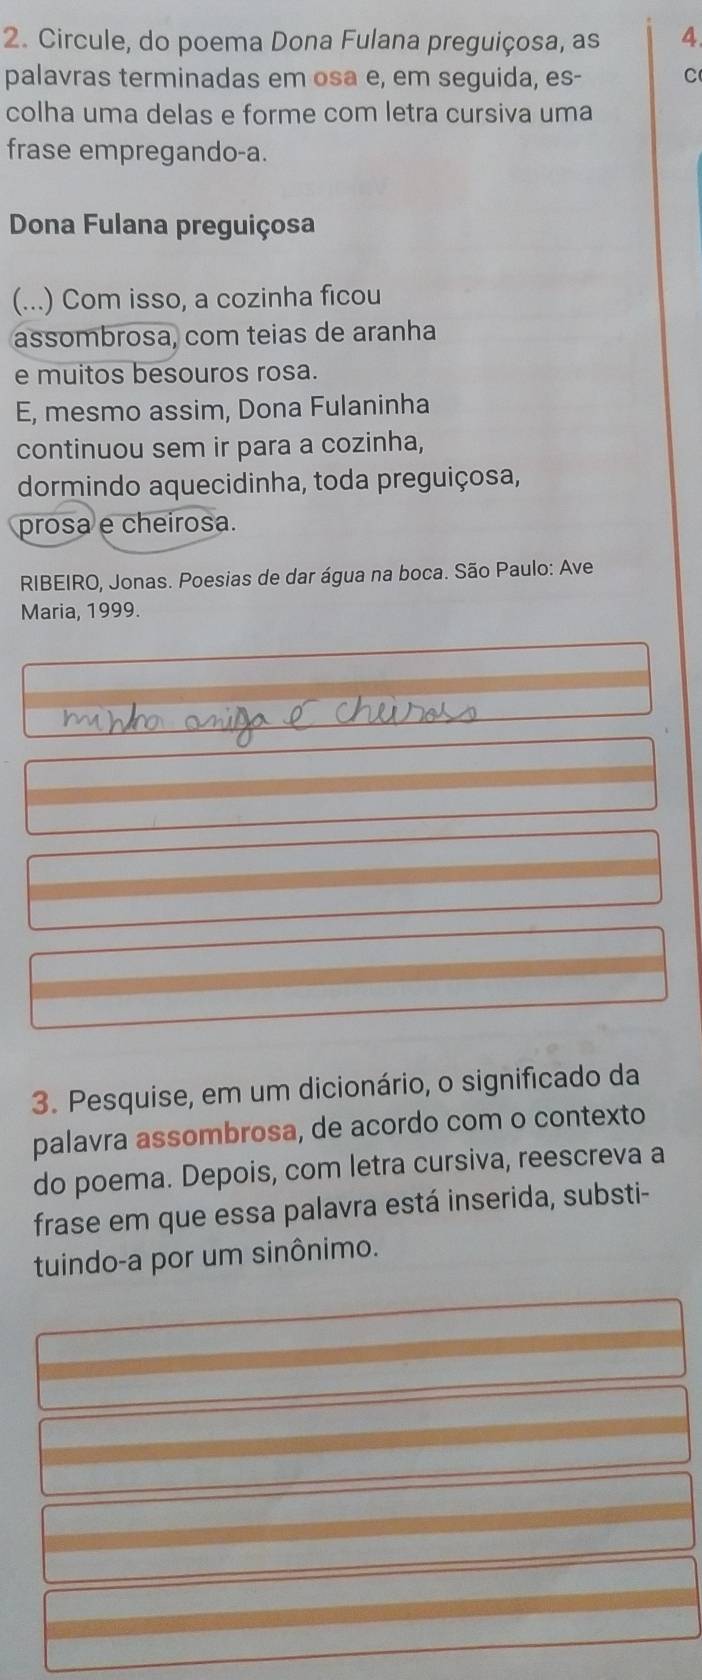 2. Circule, do poema Dona Fulana preguiçosa, as
palavras terminadas em osa e, em seguida, es-
colha uma delas e forme com letra cursiva uma
frase empregando-a.
Dona Fulana preguiçosa
(...) Com isso, a cozinha ficou
assombrosa, com teias de aranha
e muitos besouros rosa.
E, mesmo assim, Dona Fulaninha
continuou sem ir para a cozinha,
dormindo aquecidinha, toda preguiçosa,
prosa e cheirosa.
RIBEIRO, Jonas. Poesias de dar água na boca. São Paulo: Ave
Maria, 1999.
minha aniga é cheiroso
3. Pesquise, em um dicionário, o significado da
palavra assombrosa, de acordo com o contexto
do poema. Depois, com letra cursiva, reescreva a
frase em que essa palavra está inserida, substi-
tuindo-a por um sinônimo.
4.